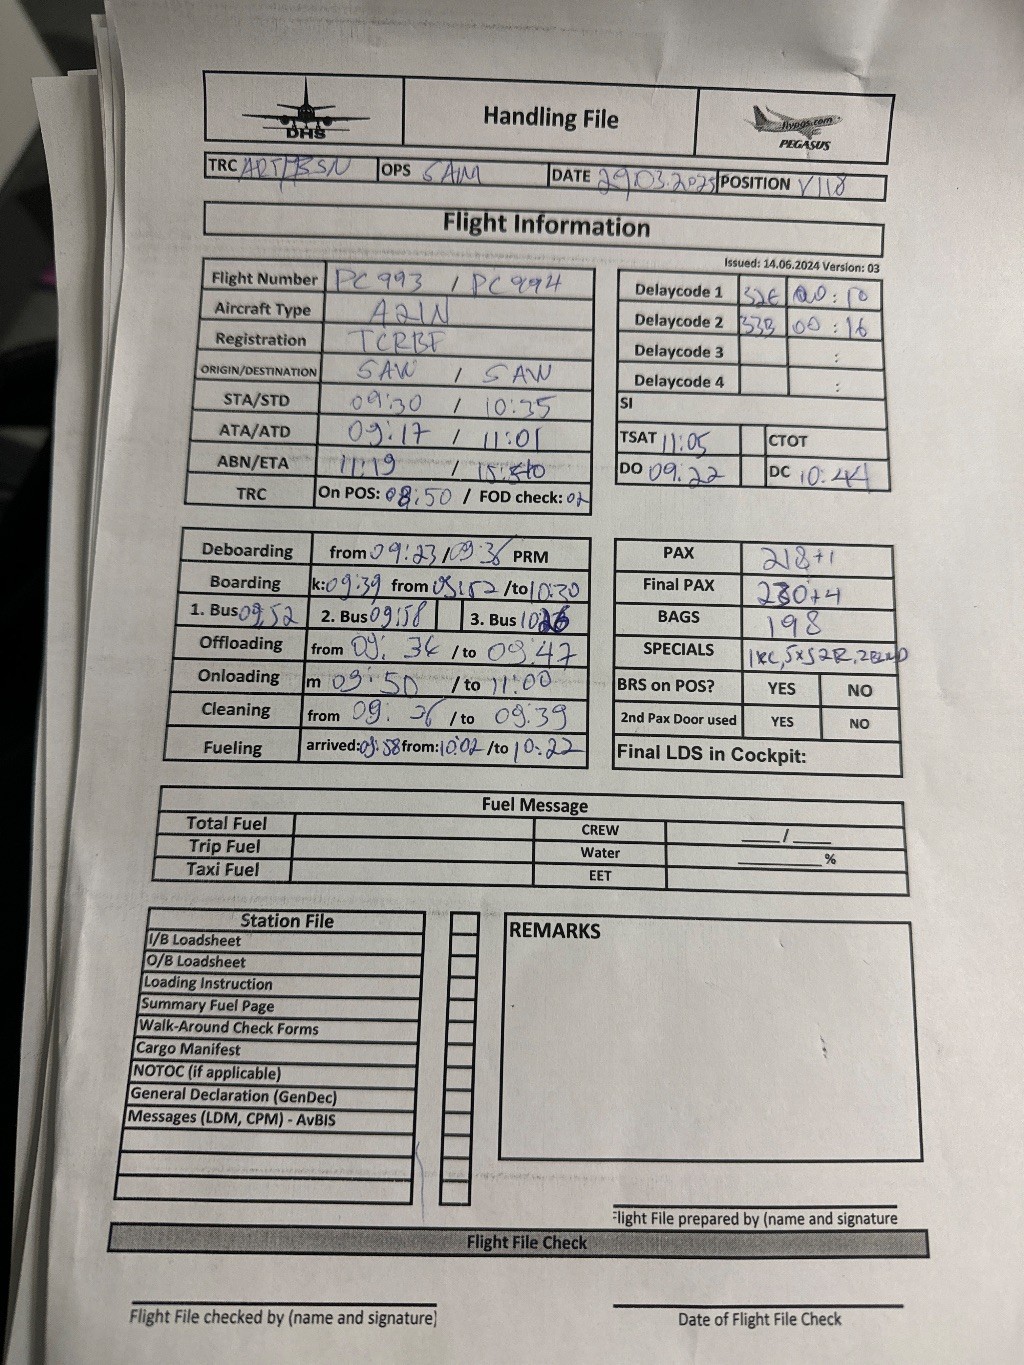 DHS
Handling File
flypgs.com
PEGASUS
TRC ART/BSN OPS SAM DATE 29.03.2025 POSITION V118
Flight Information
Issued: 14.06.2024 Version: 03
Flight Number PC 993 / PC 994
Aircraft Type A21N
Registration TCRBF
ORIGIN/DESTINATION SAW / SAW
STA/STD 09:30 / 10:35
ATA/ATD 09:17 / 11:01
ABN/ETA 11:19 /
TRC On POS: 08:50 / FOD check: 02
Delaycode 1 32E 00:10
Delaycode 2 33B 00:16
Delaycode 3 :
Delaycode 4 :
SI
TSAT 11:05 CTOT
DO 09:22 DC 10:44
Deboarding from 09:23 / 09:36 PRM
Boarding k: 09:39 from 09:52 /to 10:30
1. Bus 09:52 2. Bus 09:58 3. Bus
Offloading from 09:36 /to 09:47
Onloading m 09:50 /to 11:00
Cleaning from 09:36 /to 09:39
Fueling arrived: 09:58 from: 10:02 /to 10:22
PAX 218+1
Final PAX 230+4
BAGS 198
SPECIALS
BRS on POS? YES NO
2nd Pax Door used YES NO
Final LDS in Cockpit:
Fuel Message
Total Fuel CREW ___/___
Trip Fuel Water ______ %
Taxi Fuel EET
Station File
I/B Loadsheet
O/B Loadsheet
Loading Instruction
Summary Fuel Page
Walk-Around Check Forms
Cargo Manifest
NOTOC (if applicable)
General Declaration (GenDec)
Messages (LDM, CPM) - AvBIS
REMARKS
Flight File prepared by (name and signature
Flight File Check
Flight File checked by (name and signature)
Date of Flight File Check